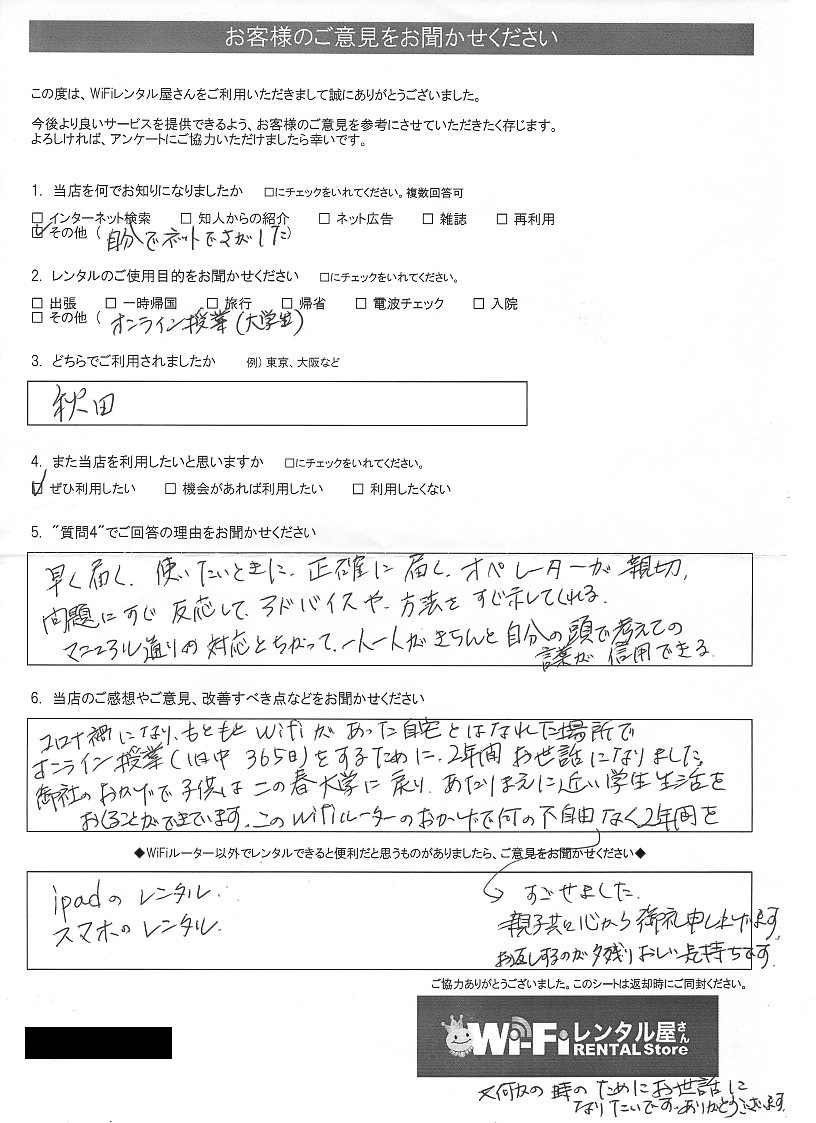 お客様のご意見をお聞かせください
この度は、WiFiレンタル屋さんをご利用いただきまして誠にありがとうございました。
今後より良いサービスを提供できるよう、お客様のご意見を参考にさせていただきたく存じます。
よろしければ、アンケートにご協力いただけましたら幸いです。
1. 当店を何でお知りになりましたか □にチェックをいれてください。複数回答可
□ インターネット検索 □ 知人からの紹介 □ ネット広告 □ 雑誌 □ 再利用
☑ その他 ( 自分でネットでさがした)
2. レンタルのご使用目的をお聞かせください □にチェックをいれてください。
□ 出張 □ 一時帰国 □ 旅行 □ 帰省 □ 電波チェック □ 入院
□ その他 ( オンライン授業(大学生)
3. どちらでご利用されましたか 例) 東京、大阪など
秋田
4. また当店を利用したいと思いますか □にチェックをいれてください。
☑ ぜひ利用したい □ 機会があれば利用したい □ 利用したくない
5. "質問4"でご回答の理由をお聞かせください
早く届く、使いたいときに、正確に届く、オペレーターが親切、
問題にすぐ反応して、アドバイスや、方法をすぐ示してくれる。
マニュアル通りの対応とちがって、一人一人がきちんと自分の頭で考えての
言葉が信用できる。
6. 当店のご感想やご意見、改善すべき点などをお聞かせください
コロナ禍になり、もともとWifiがあった自宅とはなれた場所で
オンライン授業(1日中 365日)をするために、2年間お世話になりました。
御社のおかげで子供はこの春大学に戻り、あたりまえに近い学生生活を
おくることができています。このWifiルーターのおかげで何の不自由なく2年間を
◆WiFiルーター以外でレンタルできると便利だと思うものがありましたら、ご意見をお聞かせください◆
すごせました。
親子共に心から御礼申し上げます
お返しするのが名残りおしい気持ちです。
ipadのレンタル.
スマホのレンタル.
ご協力ありがとうございました。このシートは返却時にご同封ください。
Wi-Fiレンタル屋さん
RENTAL Store
又何かの時のためにお世話に
なりたいです。ありがとうございます。